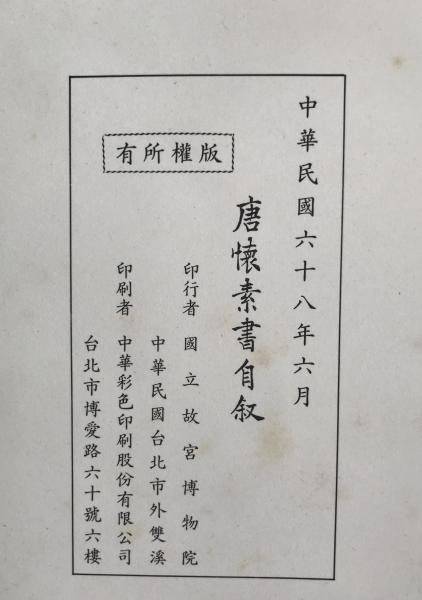 中華民國六十八年六月
唐懷素書自叙
版權所有
印行者 國立故宮博物院
中華民國台北市外雙溪
印刷者 中華彩色印刷股份有限公司
台北市博愛路六十號六樓